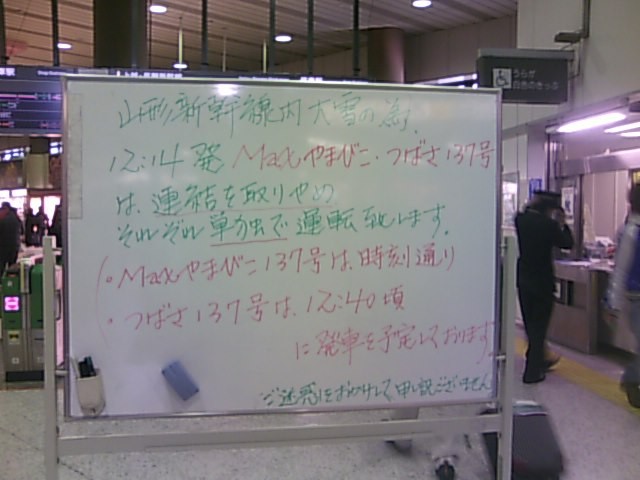 山形新幹線内大雪の為、
12:14発 Maxやまびこ・つばさ137号
は、連結を取りやめ
それぞれ単独で運転致します。
・Maxやまびこ137号は、時刻通り
・つばさ137号は、12:40頃
に発車を予定しております
ご迷惑をおかけして申し訳ございません